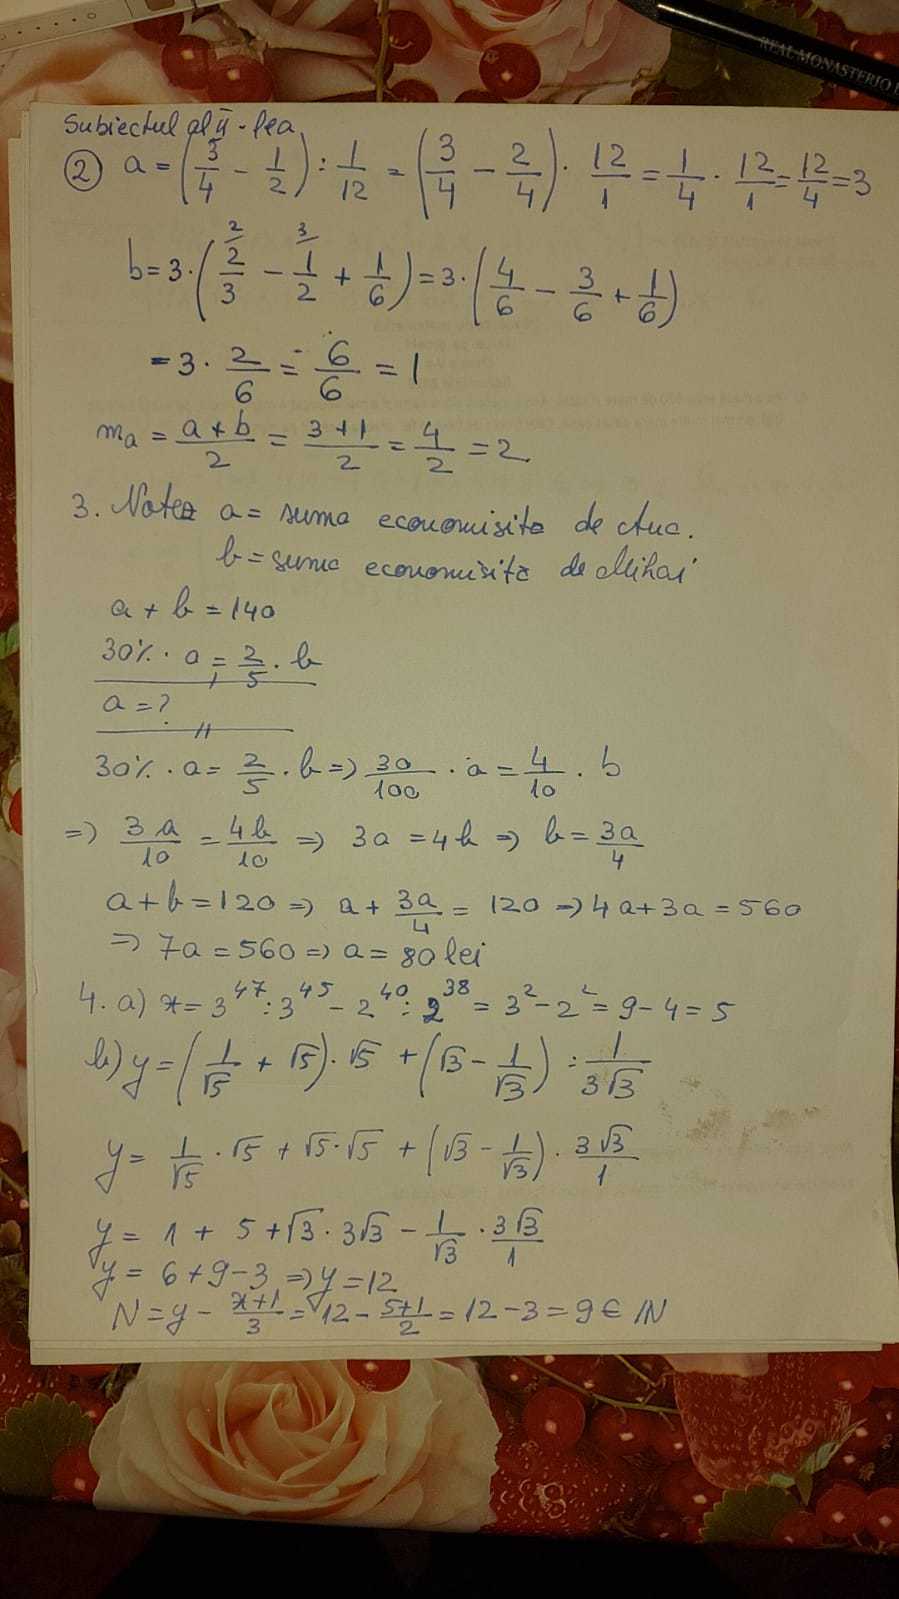 REAL MONASTERIO
Subiectul al II-lea
② a = (3/4 - 1/2) : 1/12 = (3/4 - 2/4) · 12/1 = 1/4 · 12/1 = 12/4 = 3
b = 3 · (²⁄2/3 - ³⁄1/2 + 1/6) = 3 · (4/6 - 3/6 + 1/6)
= 3 · 2/6 = 6/6 = 1
mₐ = a + b/2 = 3 + 1/2 = 4/2 = 2
3. Notez a = suma economisita de Ana.
b = suma economisită de Mihai
a + b = 140
30% · a = 2/5 · b
a = ?
30% · a = 2/5 · b => 30/100 · a = 4/10 · b
=> 3a/10 = 4b/10 => 3a = 4b => b = 3a/4
a + b = 120 => a + 3a/4 = 120 => 4a + 3a = 560
=> 7a = 560 => a = 80 lei
4. a) x = 3⁴⁷ : 3⁴⁵ - 2⁴⁰ : 2³⁸ = 3² - 2² = 9 - 4 = 5
b) y = (1/√5 + √5) · √5 + (√3 - 1/√3) : 1/3√3
y = 1/√5 · √5 + √5 · √5 + (√3 - 1/√3) · 3√3/1
y = 1 + 5 + √3 · 3√3 - 1/√3 · 3√3/1
y = 6 + 9 - 3 => y = 12
N = y - x+1/3 = 12 - 5+1/2 = 12 - 3 = 9 ∈ ℕ